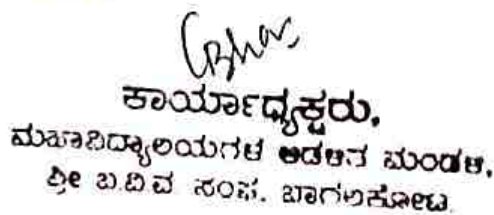 ಕಾರ್ಯಾಧ್ಯಕ್ಷರು,
ಮಹಾವಿದ್ಯಾಲಯಗಳ ಆಡಳಿತ ಮಂಡಳಿ,
ಶ್ರೀ ಬ.ವಿ.ವ ಸಂಘ, ಬಾಗಲಕೋಟ.